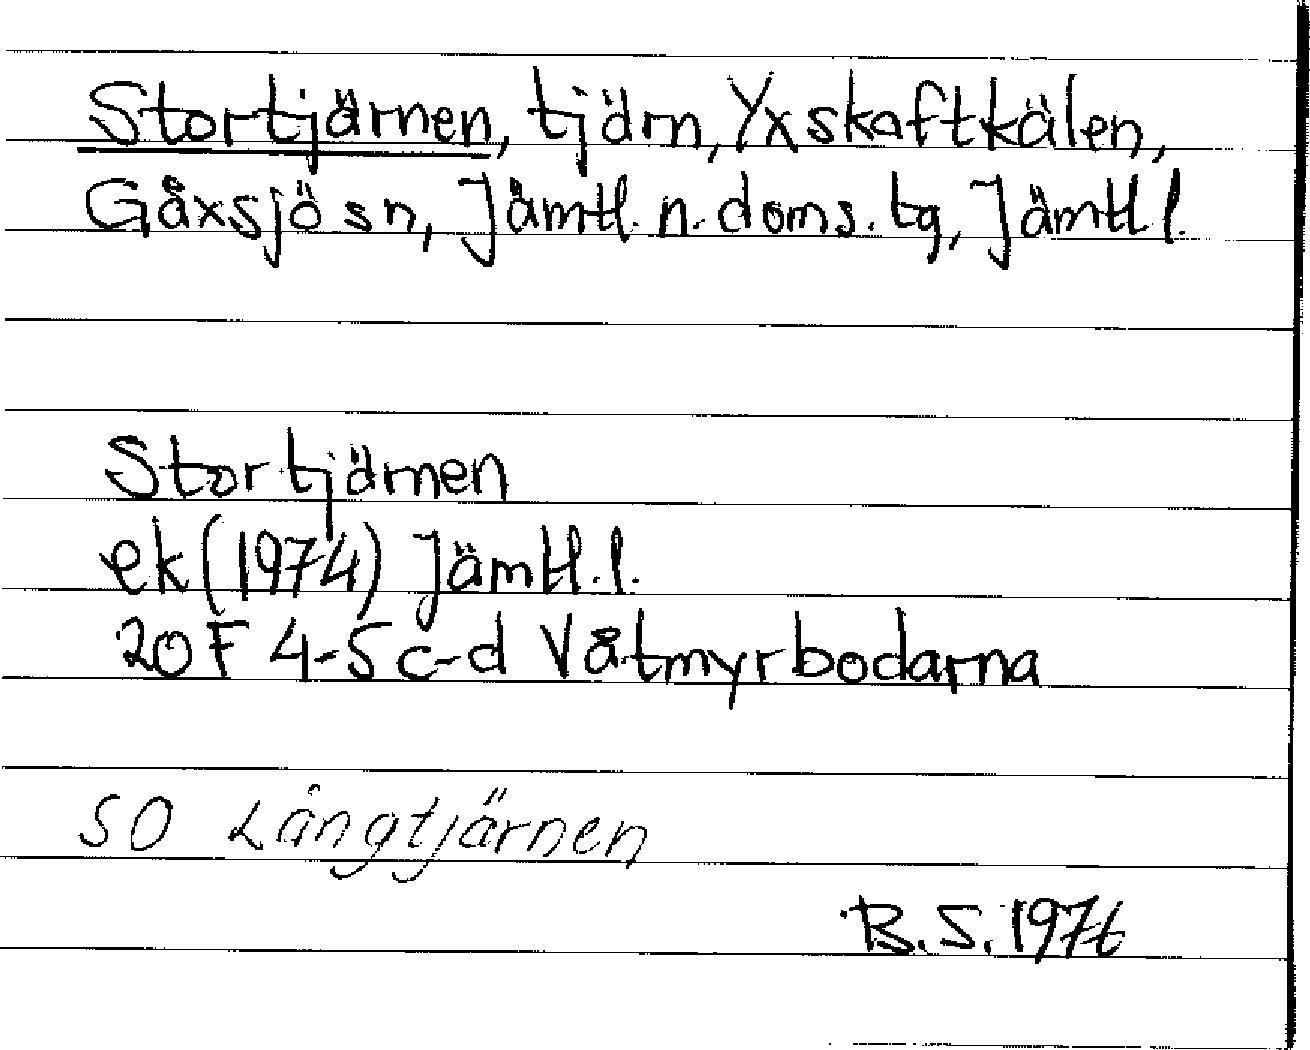 Stortjärnen, tjärn, Yxskaftkälen,
Gåxsjö sn, Jämtl. n. doms. tg, Jämtl l.
Stortjärnen
ek (1974) Jämtl. l.
20F 4-5 c-d Våtmyrbodarna
SO Långtjärnen
B.S. 1976